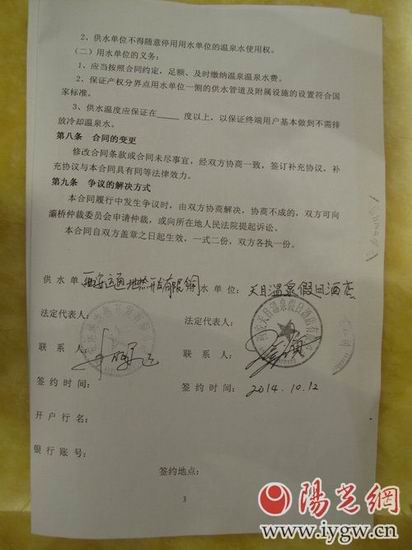 2、供水单位不得随意停用用水单位的温泉水使用权。
（二）用水单位的义务：
1、应当按照合同约定，足额、及时缴纳温泉温泉水费。
2、保证产权分界点用水单位一侧的供水管道及附属设施的设置符合国
家标准。
3、供水温度应保证在______度以上，以保证终端用户基本做到不需排
放冷却温泉水。
第八条 合同的变更
修改合同条款或合同未尽事宜，经双方协商一致，签订补充协议，补
充协议与本合同具有同等法律效力。
第九条 争议的解决方式
本合同履行中发生争议时，由双方协商解决，协商不成的，双方可向
灞桥仲裁委员会申请仲裁，或向所在地人民法院提起诉讼。
本合同自双方盖章之日起生效，一式二份，双方各执一份。
供水单 用水单位：天月温泉假日酒店
法定代表人： 法定代表人：
联系人： 联系人：
签约时间： 签约时间：2014.10.12
开户行名：
银行账号：
签约地点：
3
陽光網
www.iygw.cn